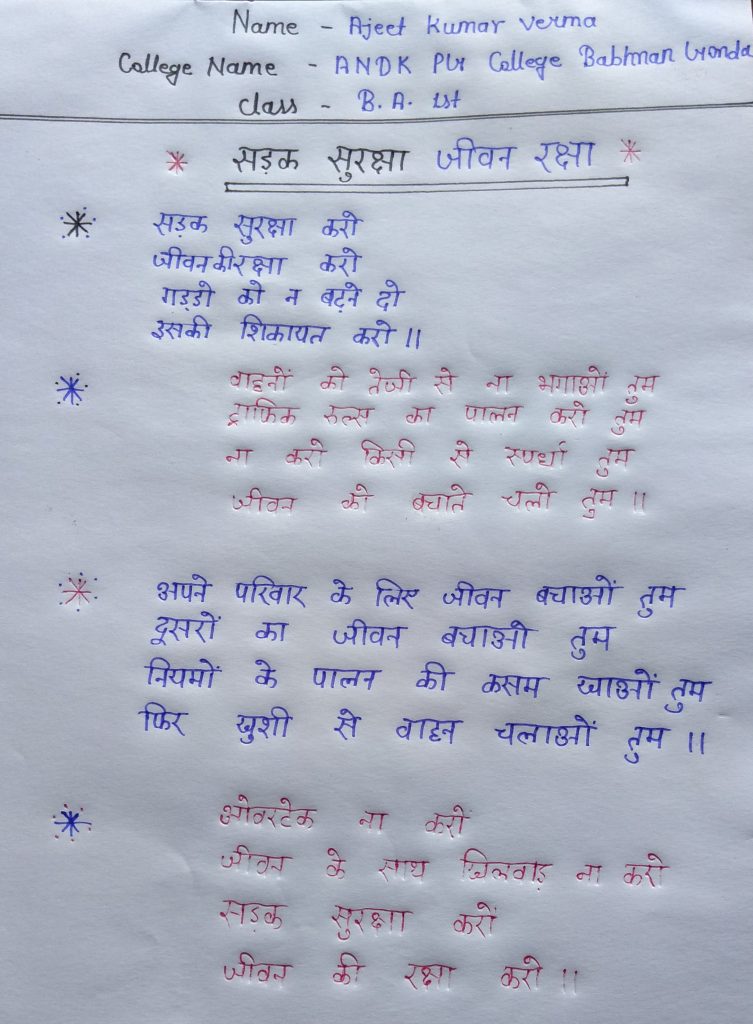 Name - Ajeet Kumar Verma
College Name - ANDK PG College Babhnan Gonda
Class - B.A. 1st
सड़क सुरक्षा जीवन रक्षा
सड़क सुरक्षा करो
जीवन की रक्षा करो
गड्डो को न बढ़ने दो
इसकी शिकायत करो ||
वाहनों को तेजी से ना भगाओं तुम
ट्राफिक रुल्स का पालन करो तुम
ना करो किसी से स्पर्धा तुम
जीवन को बचाते चलो तुम ||
अपने परिवार के लिए जीवन बचाओं तुम
दूसरों का जीवन बचाओ तुम
नियमों के पालन की कसम खाओं तुम
फिर खुशी से वाहन चलाओं तुम ||
ओवरटेक ना करों
जीवन के साथ खिलवाड़ ना करो
सड़क सुरक्षा करों
जीवन की रक्षा करो ||